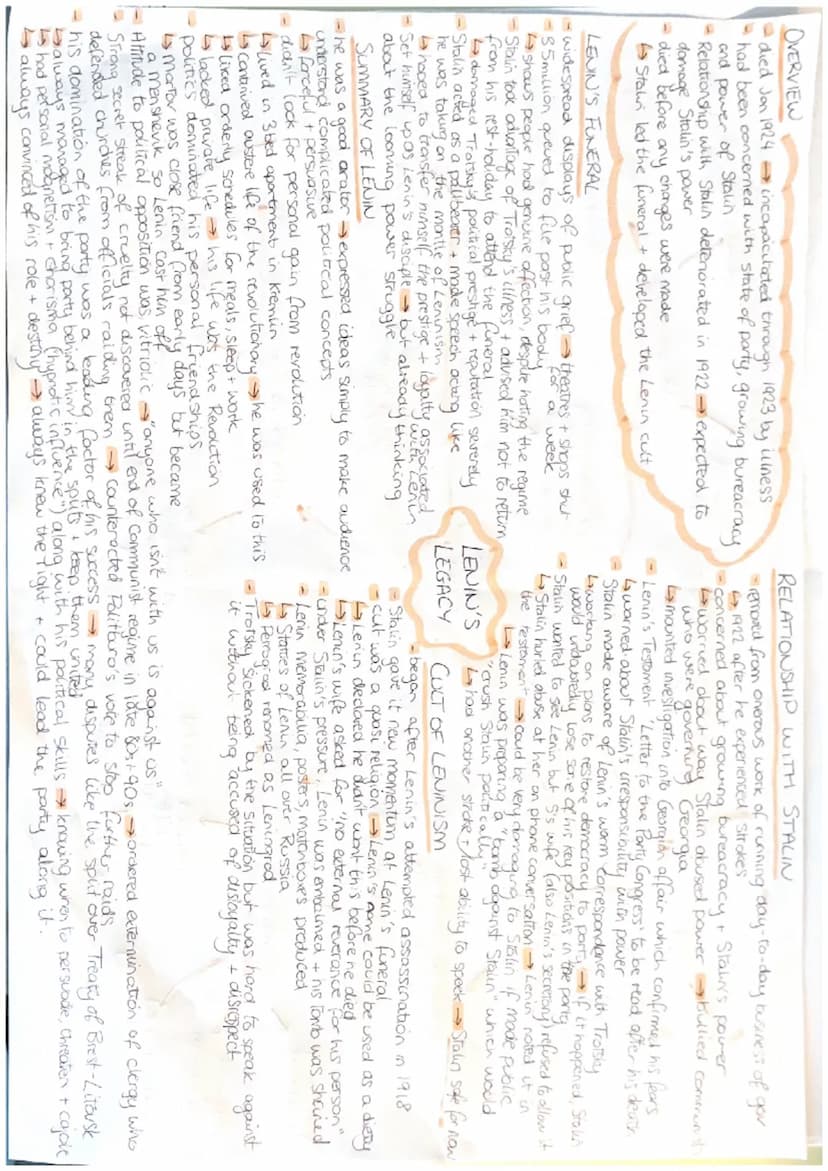 OVERVIEW
- died Jan 1924 → incapacitated through 1923 by illness
- had been concerned with state of party, growing bureacracy
and power of Stalin
- Relationship with Stalin deteriorated in 1922 → expected to
damage Stalin's power
- died before any changes were made
↳ Stalin led the funeral + developed the Lenin cult
LENIN'S FUNERAL
- widespread displays of public grief → theatres + shops shut
for a week
- 3.5million queued to file past his body
↳ shows people had genuine affection, despite hating the regime
- Stalin took advantage of Trotsky's illness + advised him not to return
from his rest-holiday to attend the funeral
↳ damaged Trotsky's political prestige + reputation severely
- Stalin acted as a pallbearer + made speech acting like
he was taking on the mantle of Leninism.
↳ hoped to transfer himself the prestige + loyalty associated
with Lenin
- Set himself up as Lenin's disciple → but already thinking
about the looming power struggle
SUMMARY OF LENIN
- he was a good orator → expressed ideas simply to make audience
understand complicated political concepts
↳ forceful + persuasive
- didn't look for personal gain from revolution
↳ lived in 3 bed apartment in Kremlin
↳ continued austere life of the revolutionary → he was used to this
↳ liked orderly schedules for meals, sleep + work
↳ lacked private life → his life was the Revolution
- politics dominated his personal friendships
↳ Martov was close friend from early days but became
a menshevik so Lenin cast him off
- Attitude to political opposition was vitriolic → "anyone who isnt with us is against us"
- Strong secret streak of cruelty not discovered until end of Communist regime in late 80s + 90s → ordered extermination of clergy who
defended churches from officials raiding them → counteracted Politburo's vote to stop further raids
- his domination of the party was a leading factor of his success → many disputes like the split over Treaty of Brest-Litovsk
↳ always managed to bring party behind him in the splits + keep them united
↳ had personal magnetism + charisma (hypnotic influence") along with his political skills → knowing when to persuade, threaten + cajole
↳ always convinced of his role + destiny → always knew the right + could lead the party along it.
LENIN'S
LEGACY
RELATIONSHIP WITH STALIN
- retired from onerous work of running day-to-day business of gov
↳ 1922 after he experienced strokes
- concerned about growing bureacracy + Stalin's power
↳ worried about way Stalin abused power → bullied communists
who were governing Georgia
↳ mounted investigation into Georgian affair which confirmed his fears
- Lenin's Testament 'Letter to the Party Congress' to be read after his death
↳ warned about Stalin's irresponsibility with power
- Stalin made aware of Lenin's warm correspondance with Trotsky
↳ working on plans to restore democracy to party → if it happened, Stalin
would undoubtedly lose some of his key positions in the party
- Stalin wanted to see Lenin but S's wife (also Lenin's secretary) refused to allow it
↳ Stalin hurled abuse at her on phone conversation → Lenin noted it in
the testament → could be very damaging to Stalin if made public
↳ Lenin was preparing a "bomb against Stalin" which would
"crush Stalin politically"
↳ had another stroke + lost ability to speak → Stalin safe for now
CULT OF LENINISM
- began after Lenin's attempted assassination in 1918
- Stalin gave it new momentum at Lenin's funeral
- cult was a quasi religion → Lenin's name could be used as a diety
↳ Lenin declared he didn't want this before he died
↳ Lenin's wife asked for "no external reverance for his person"
- under Stalin's pressure, Lenin was embalmed + his tomb was shrined
- Lenin memorabilia, posters, matchboxes produced
↳ Statues of Lenin all over Russia
↳ Petrograd renamed as Leningrad
- Trotsky sickened by the situation but was hard to speak against
it without being accused of disloyalty + disrespect